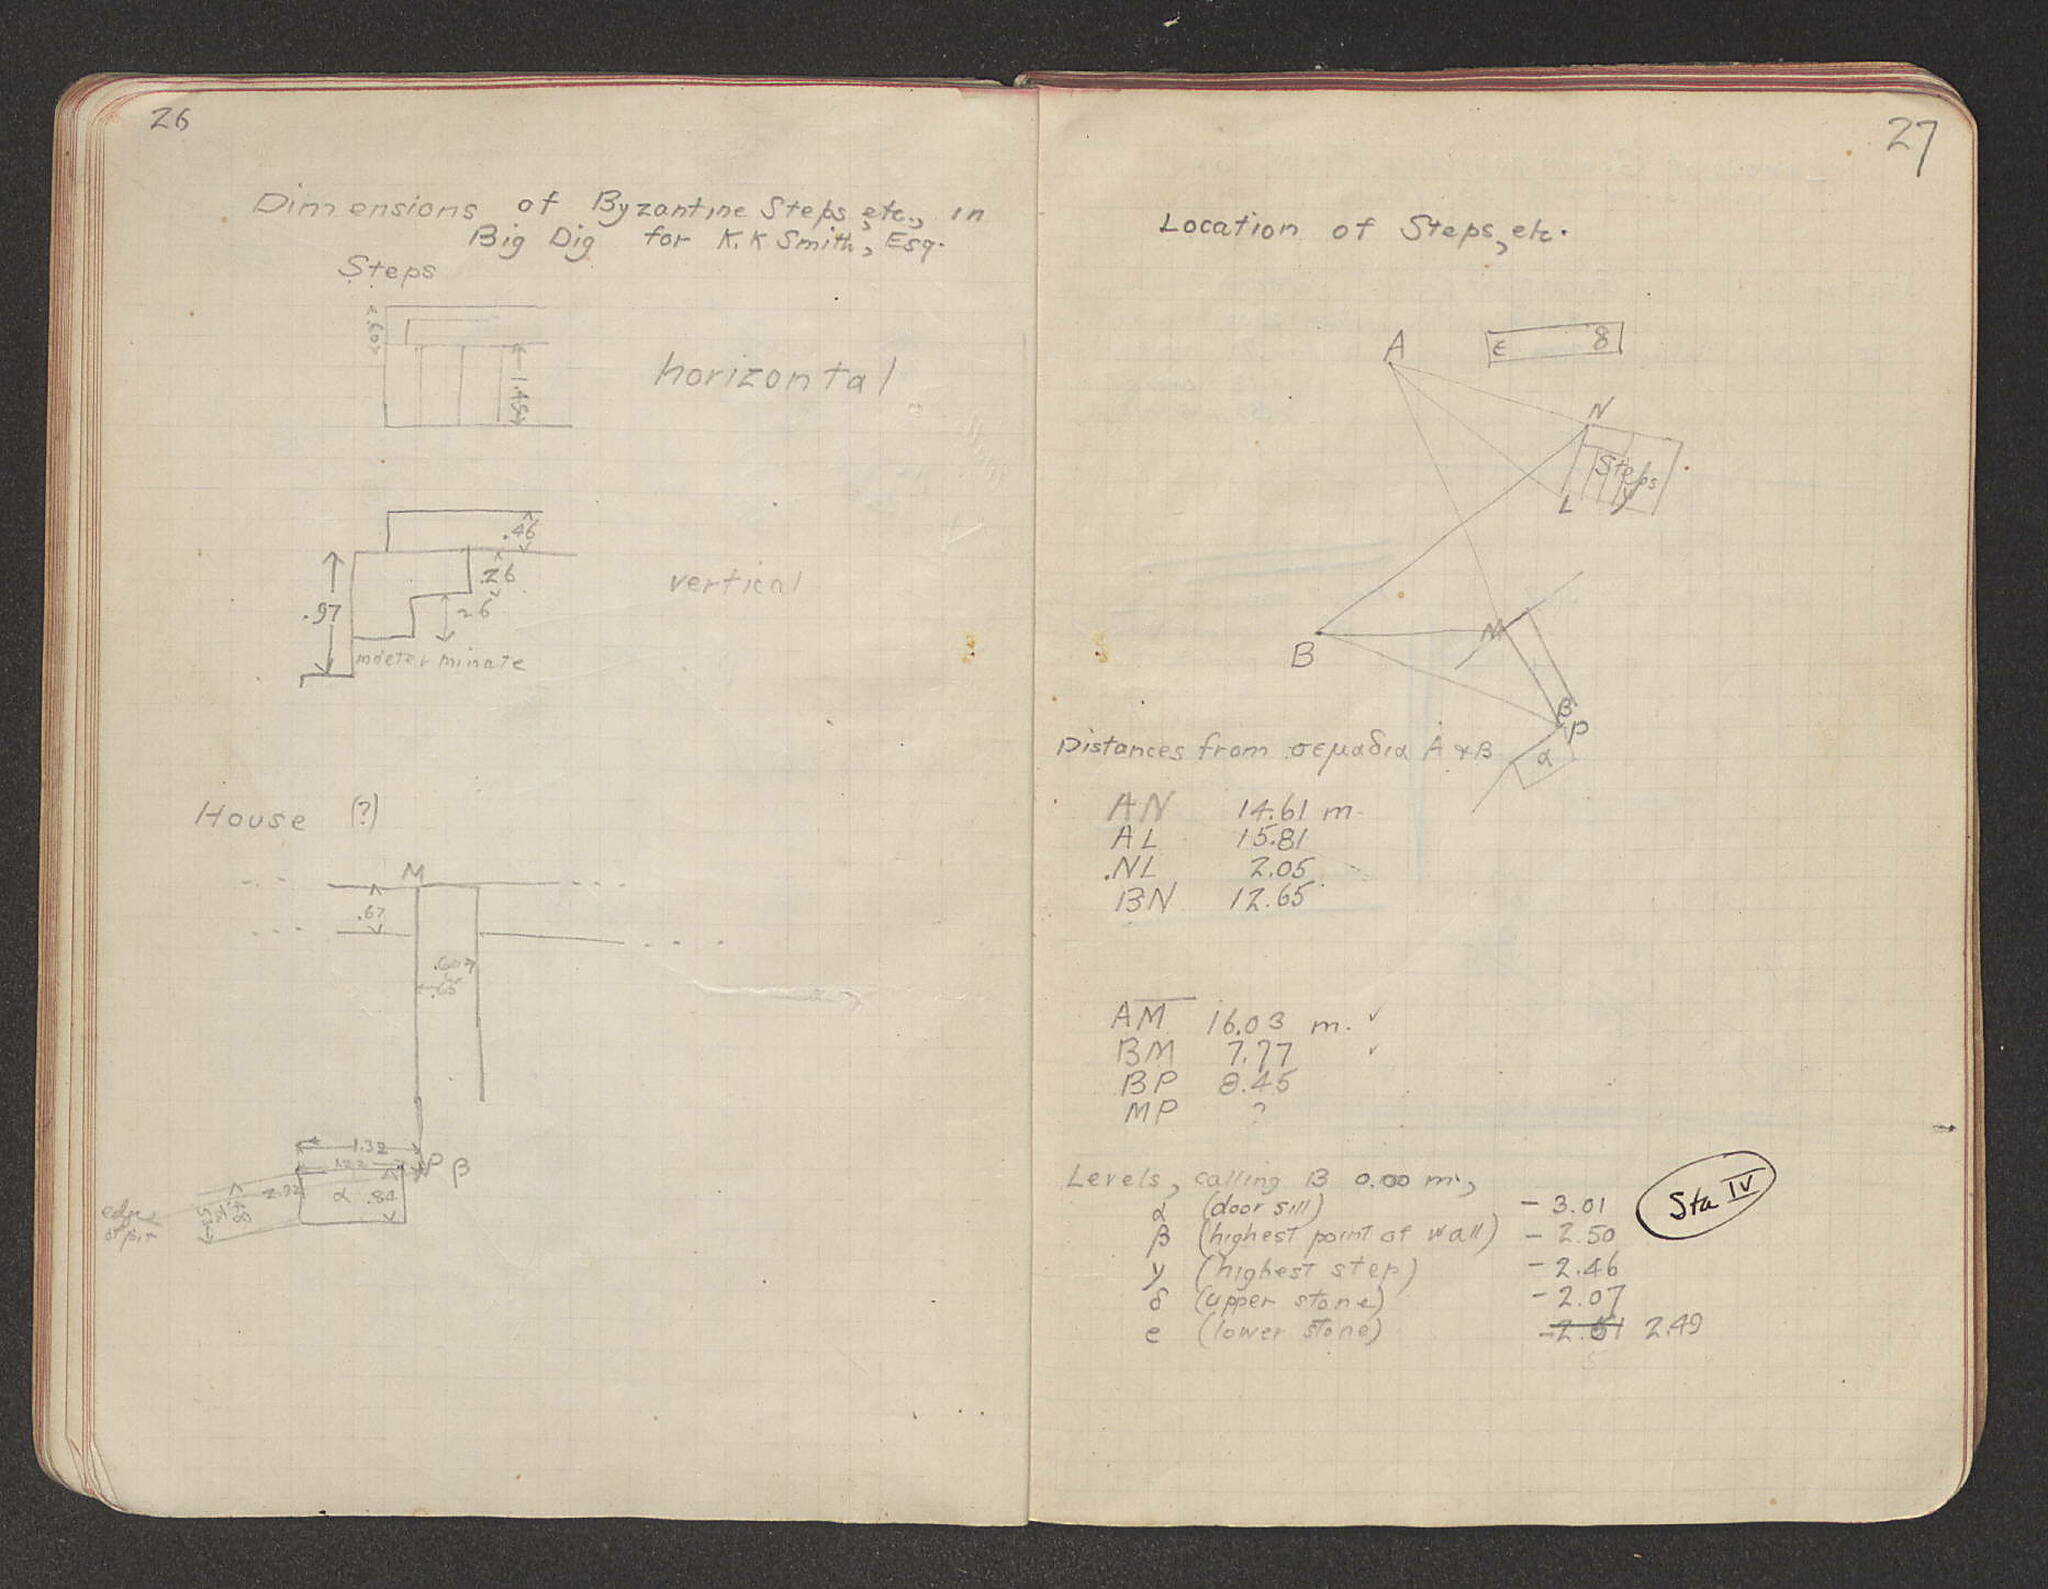 26
Dimensions of Byzantine Steps, etc., in
Big Dig for K.K Smith, Esq.
Steps
.60
1.45
horizontal
.46
.26
.97
26
vertical
indeterminate
House (?)
M
.67
.60
.65
1.32
1.22
P β
2.92
α
.84
edge
of pit
27
Location of Steps, etc.
A
ε
δ
N
Steps
L
γ
M
B
β
P
α
Distances from σεμαδια A + B
AN 14.61 m.
AL 15.81
NL 2.05
BN 12.65
AM 16.03 m. ✓
BM 7.77 ✓
BP 8.45
MP ?
Levels, calling B 0.00 m.,
α (door sill) - 3.01
β (highest point of wall) - 2.50
γ (highest step) - 2.46
δ (upper stone) - 2.07
e (lower stone) 2.49
Sta IV